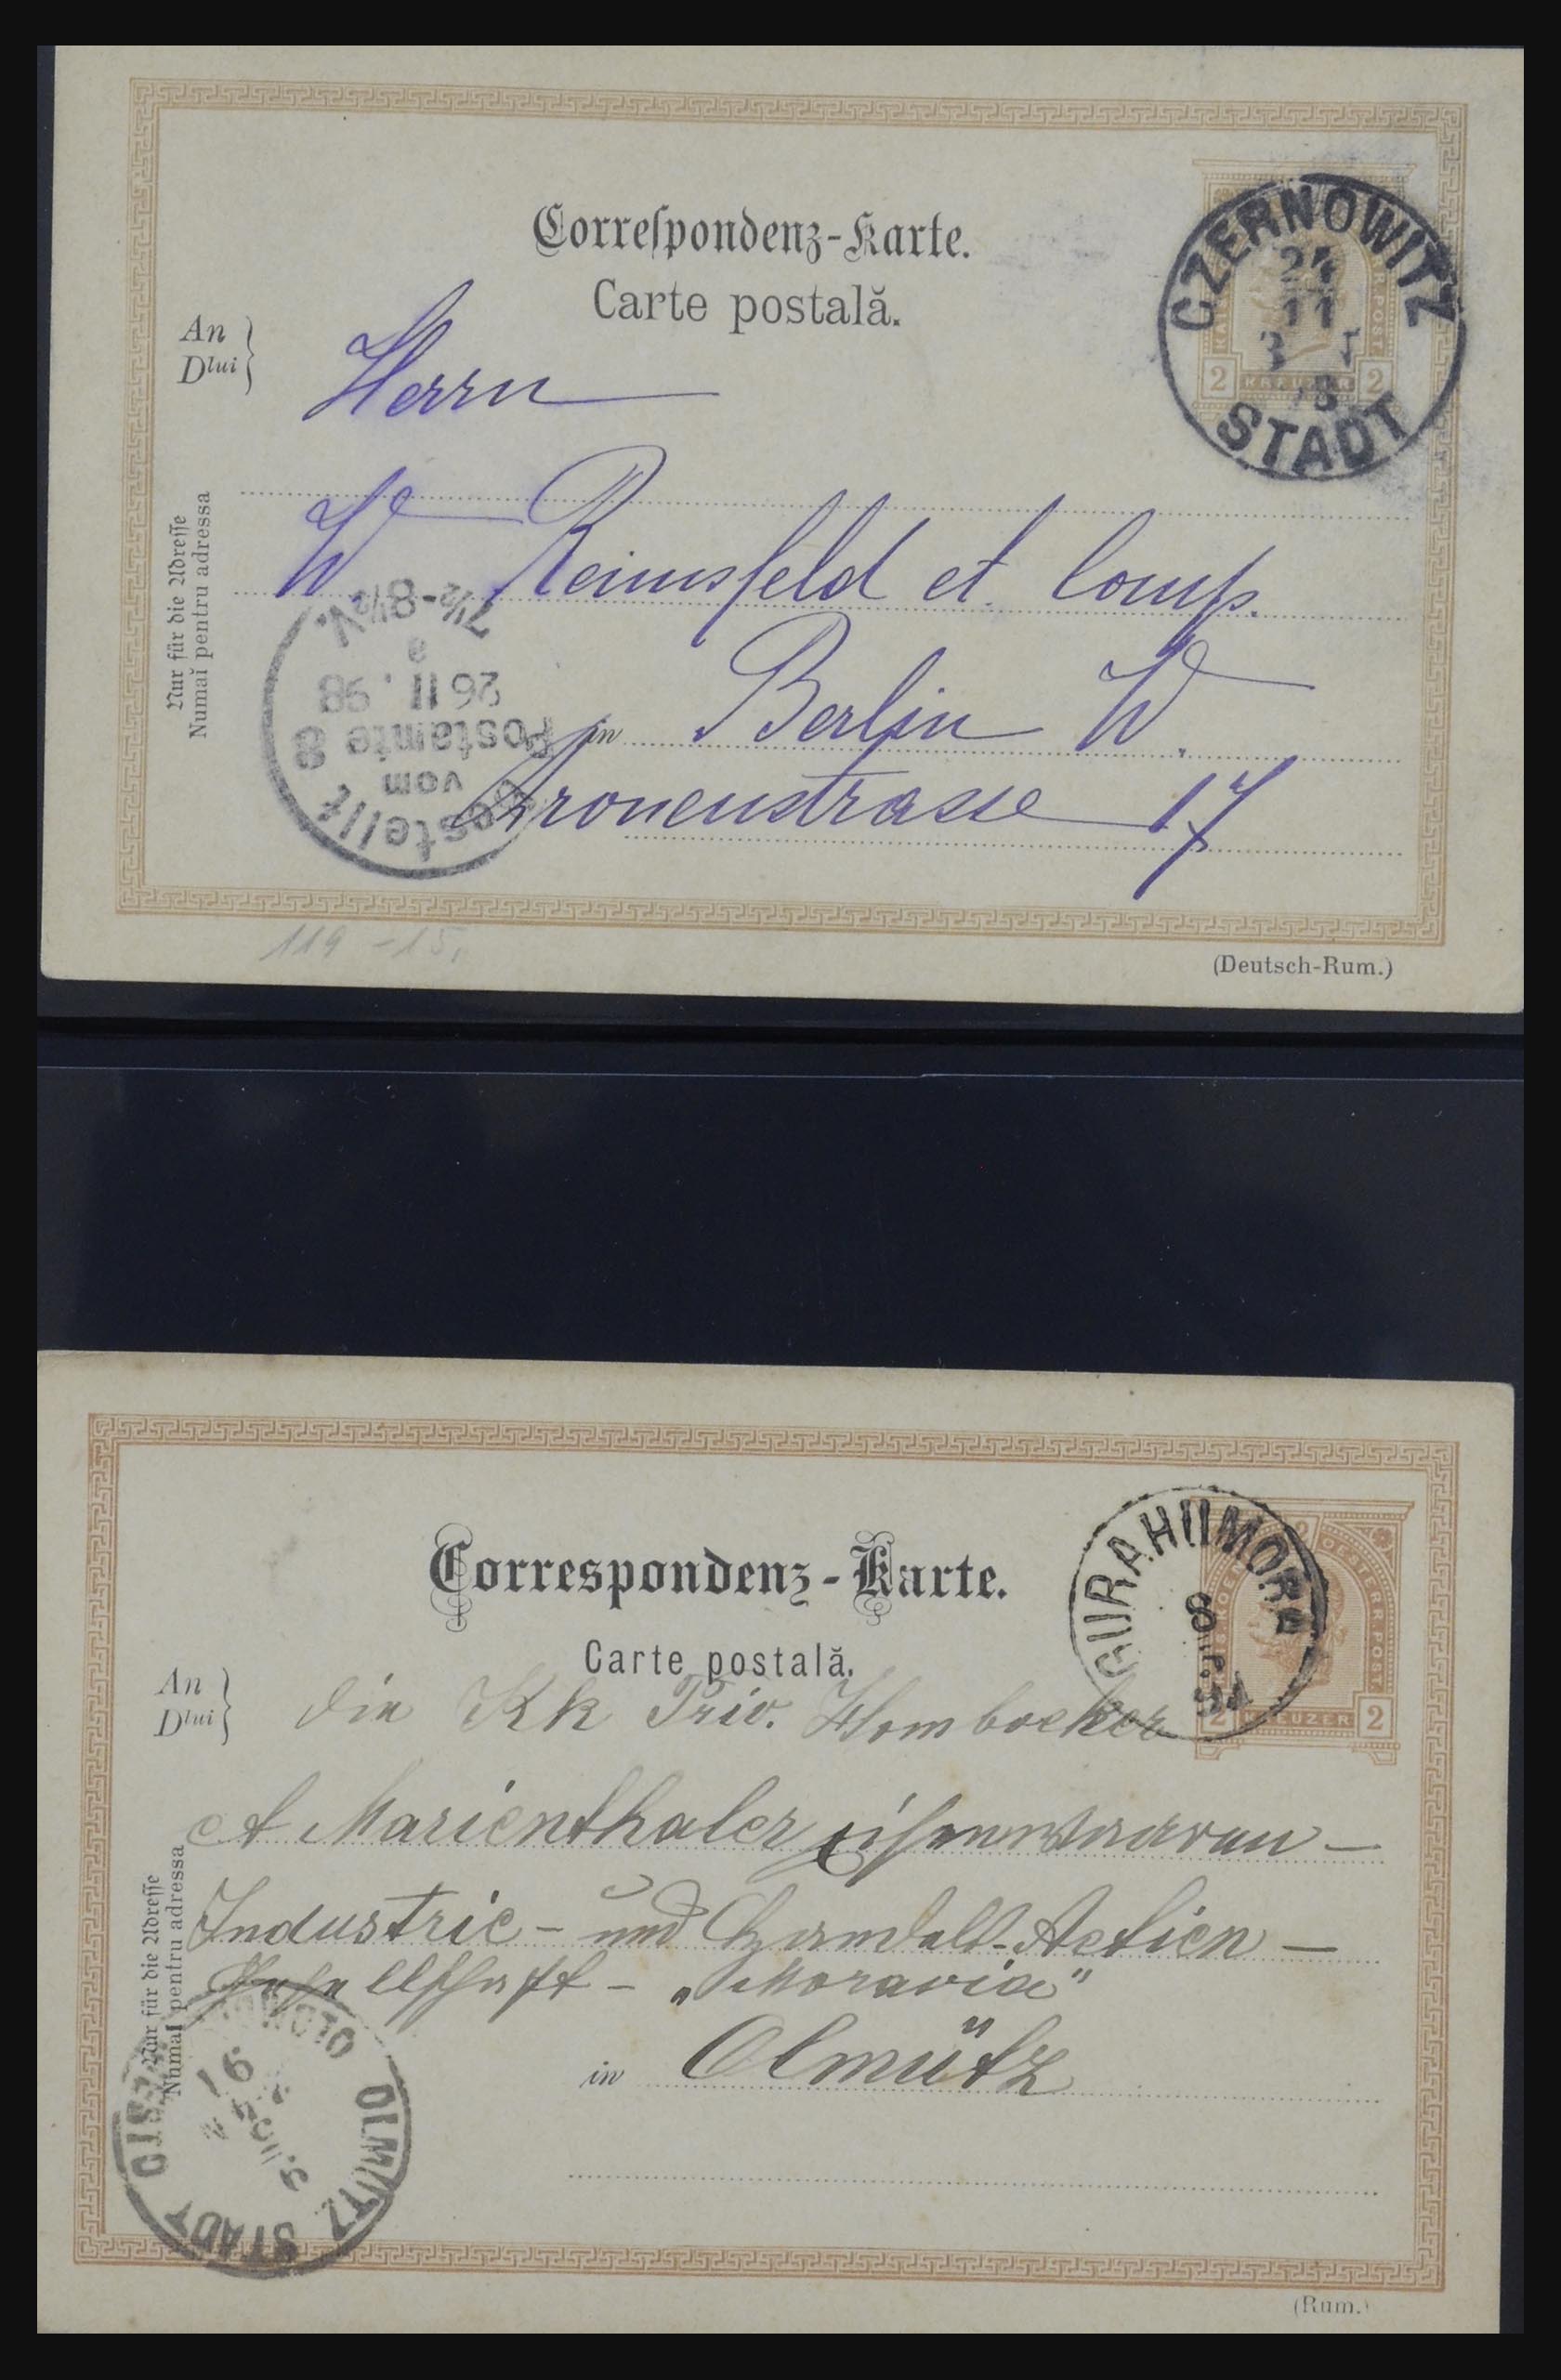 Correſpondenz-Karte.
Carte postală.
CZERNOWITZ
24
11
STADT
2 KREUZER 2
An
Dlui
Herrn
W. Reimsfeld et Comp.
in Berlin W.
Kronenstrasse 17
Nur für die Adreſſe
Numaĭ pentru adressa
Bestellt
vom
Postamte 8
26 11. 98
7½-8½N.
119 -15,
(Deutsch-Rum.)
Correspondenz-Karte.
Carte postală.
GURAHUMORA
8
2 KREUZER 2
An
Dlui
die KK Priv. Hombocker
et Marienthaler Eisenwaaren-
Industrie- und Handels-Actien-
Gesellschaft - „Moravia"
in Olmütz
Nur für die Adreſſe
Numaĭ pentru adressa
OLMÜTZ STADT
OLOMOUC MĚSTO
(Rum.)